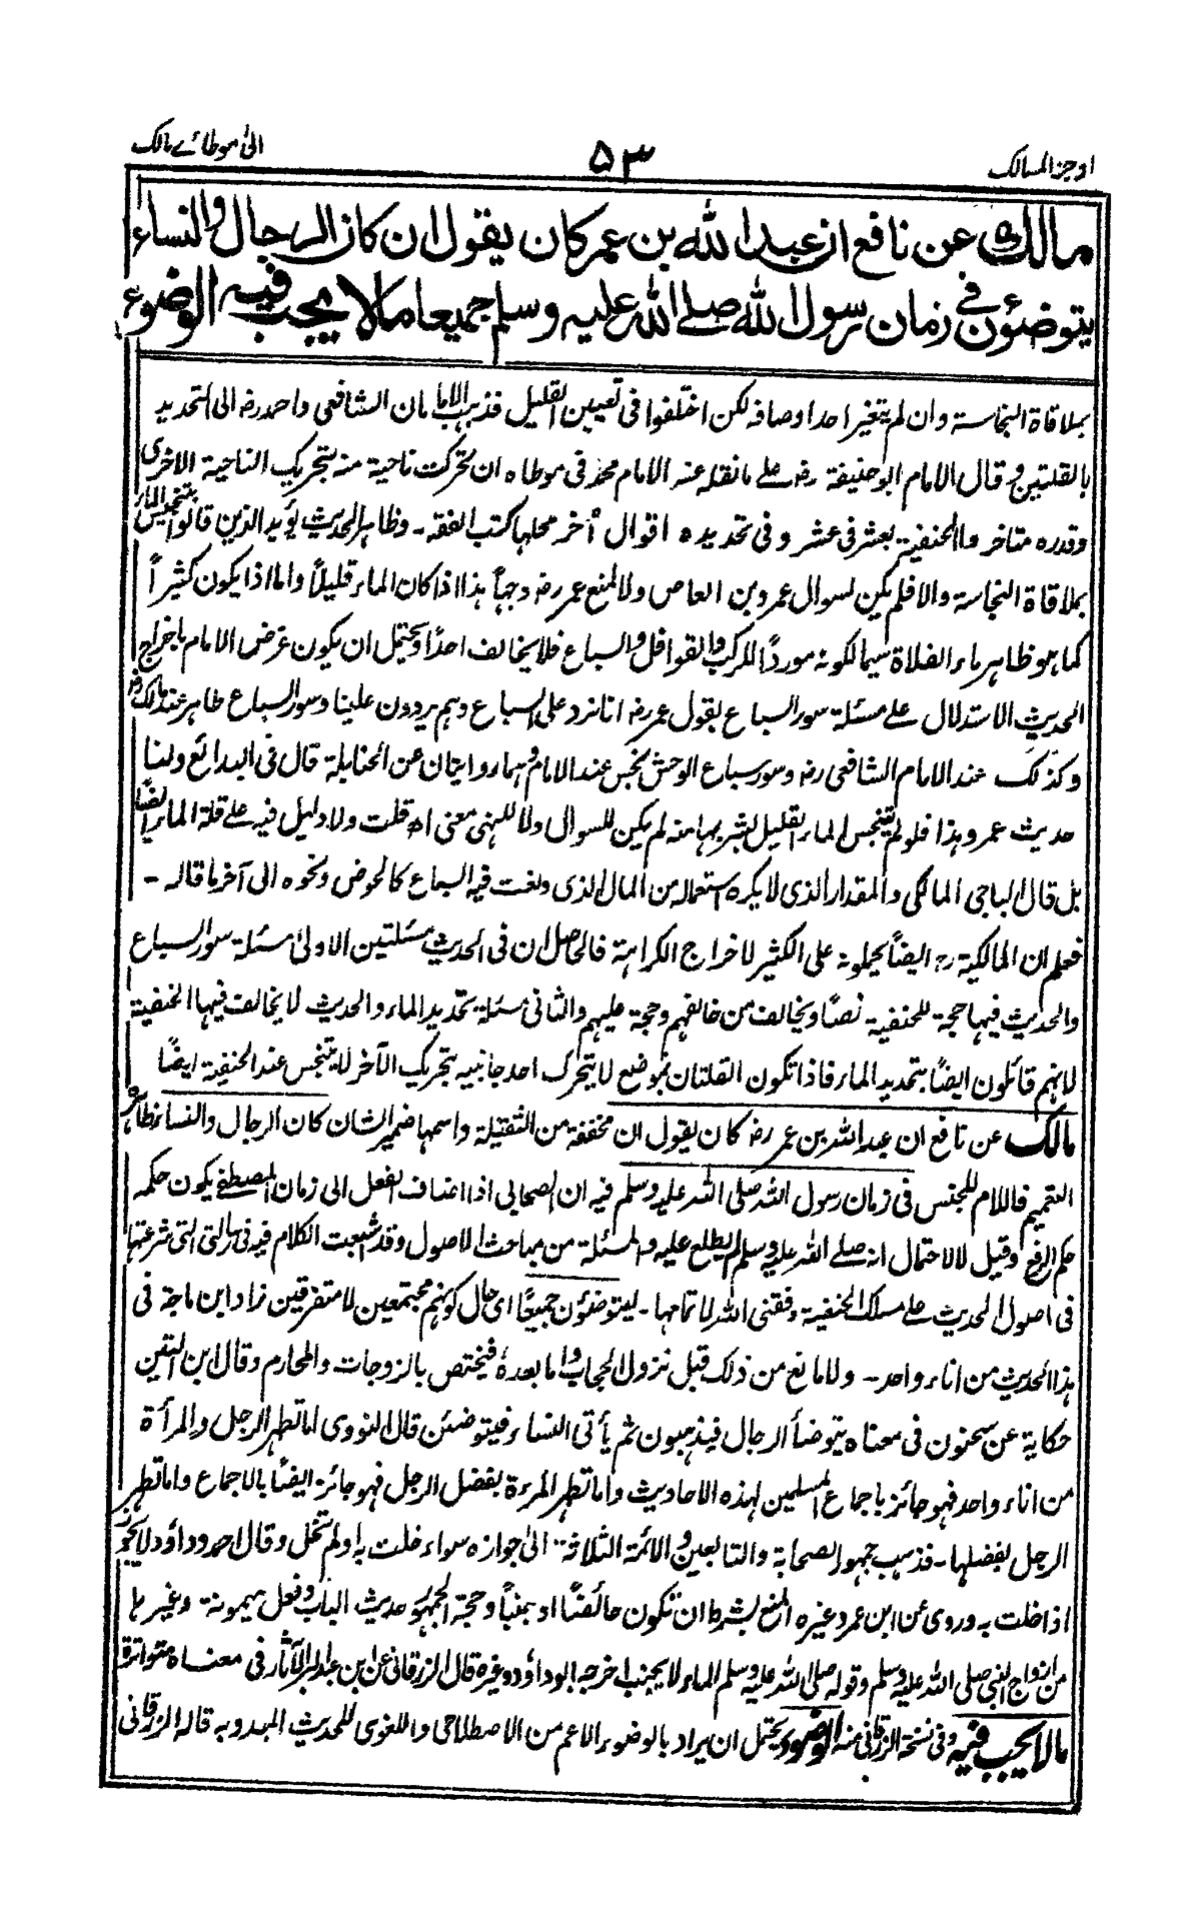 اوجز المسالك ٥٣ الى موطائے مالك
مالك عن نافع ان عبد الله بن عمر كان يقول ان كان الرجال والنساء
يتوضئون في زمان رسول الله صلے الله عليه وسلم جميعا مالا يجب فيه الوضوء
بملاقاة النجاسة وان لم يتغير احد اوصافه لكن اختلفوا فى تعيين القليل فذهب الامامان الشافعى واحمد رض الى التحديد
بالقلتين وقال الامام ابو حنيفة رض على ما نقله عنه الامام محمد فى موطاه ان تحركت ناحية منه بتحريك الناحية الاخرى
وقدره متاخروا الحنفية بعشر فى عشر وفى تحديده اقوال أخر محلها كتب الفقه - وظاهر الحديث يؤيد الذين قالوا بتنجيس الماء
بملاقاة النجاسة والا فلم يكن لسوال عمرو بن العاص ولا لمنع عمر رض وجهاً هذا اذا كان الماء قليلاً واما اذا يكون كثيراً
كما هو ظاهر ماء الفلاة سيما لكونه مورداً للركب والقوافل والسباع فلا يخالف احداً ويحتمل ان يكون غرض الامام باخراج
الحديث الاستدلال على مسئلة سور السباع بقول عمر رض انا نرد على السباع وهم يردون علينا وسور السباع طاهر عند مالك رض
وكذلك عند الامام الشافعى رض وسور سباع الوحش نجس عند الامام وهما روايتان عن الحنابلة قال فى البدائع ولنا
حديث عمر وهذا فلو لم يتنجس الماء القليل بشربها منه لم يكن للسوال ولا للنهى معنى اھ قلت ولا دليل فيه على قلة الماء ايضاً
بل قال الباجى المالكى والمقدار الذى لا يكره استعماله من المال الذى ولغت فيه السباع كالحوض ونحوه الى آخر ما قاله -
فعلم ان المالكية رح ايضاً يحملونه على الكثير لاخراج الكراهة فالحاصل ان فى الحديث مسئلتين الاولى مسئلة سور السباع
والحديث فيها حجة للحنفية نصاً ويخالف من خالفهم وحجة عليهم والثانى مسئلة تحديد الماء والحديث لا يخالف فيها الحنفية
لانهم قائلون ايضاً بتحديد الماء فاذا تكون القلتان بموضع لا يتحرك احد جانبيه بتحريك الآخر لا يتنجس عند الحنفية ايضاً
مالك عن نافع ان عبد الله بن عمر رض كان يقول ان مخففة من الثقيلة واسمها ضمير الشان كان الرجال والنساء ظاهره
التعميم فاللام للجنس فى زمان رسول الله صلى الله عليه وسلم فيه ان الصحابى اذا اضاف الفعل الى زمان المصطفى يكون حكمه
حكم الرفع وقيل لا لاحتمال انه صلے الله عليه وسلم لم يطلع عليه والمسئلة من مباحث الاصول وقد اشبعت الكلام فيه فى رسالتى التى شرعتها
فى اصول الحديث على مسلك الحنفية وفقنى الله لاتمامها - ليتوضئون جميعاً اى حال كونهم مجتمعين لا متفرقين زاد ابن ماجة فى
هذا الحديث من اناء واحد - ولا مانع من ذلك قبل نزول الحجاب واما بعدہ فيختص بالزوجات والمحارم وقال ابن التين
حكاية عن سحنون فى معناه يتوضأ الرجال فيذهبون ثم يأتى النساء فيتوضئن قال النووى اما تطهر الرجل والمرأة
من اناء واحد فهو جائز باجماع المسلمين لهذه الاحاديث واما تطهر المرءة بفضل الرجل فهو جائز ايضاً بالاجماع واما تطهر
الرجل بفضلها - فذهب جمهور الصحابة والتابعين والائمة الثلاثة الى جوازه سواء خلت به او لم تخل وقال احمد وداؤد لا يجوز
اذا خلت به وروى عن ابن عمر وغيره المنع بشرط ان تكون حائضاً او جنباً وحجة الجمهور حديث الباب وفعل ميمونة وغيرها
من ازواج النبى صلى الله عليه وسلم وقوله صلى الله عليه وسلم الماء لا يجنب اخرجه ابو داؤد وغيره قال الزرقانى عن ابن عبد البر الآثار فى معناه متواترة
مالا يجب فيه وفى نسخة الزرقانى منه الوضوء يحتمل ان يراد بالوضوء الاعم من الاصطلاحى واللغوى للحديث المبدو به قاله الزرقانى